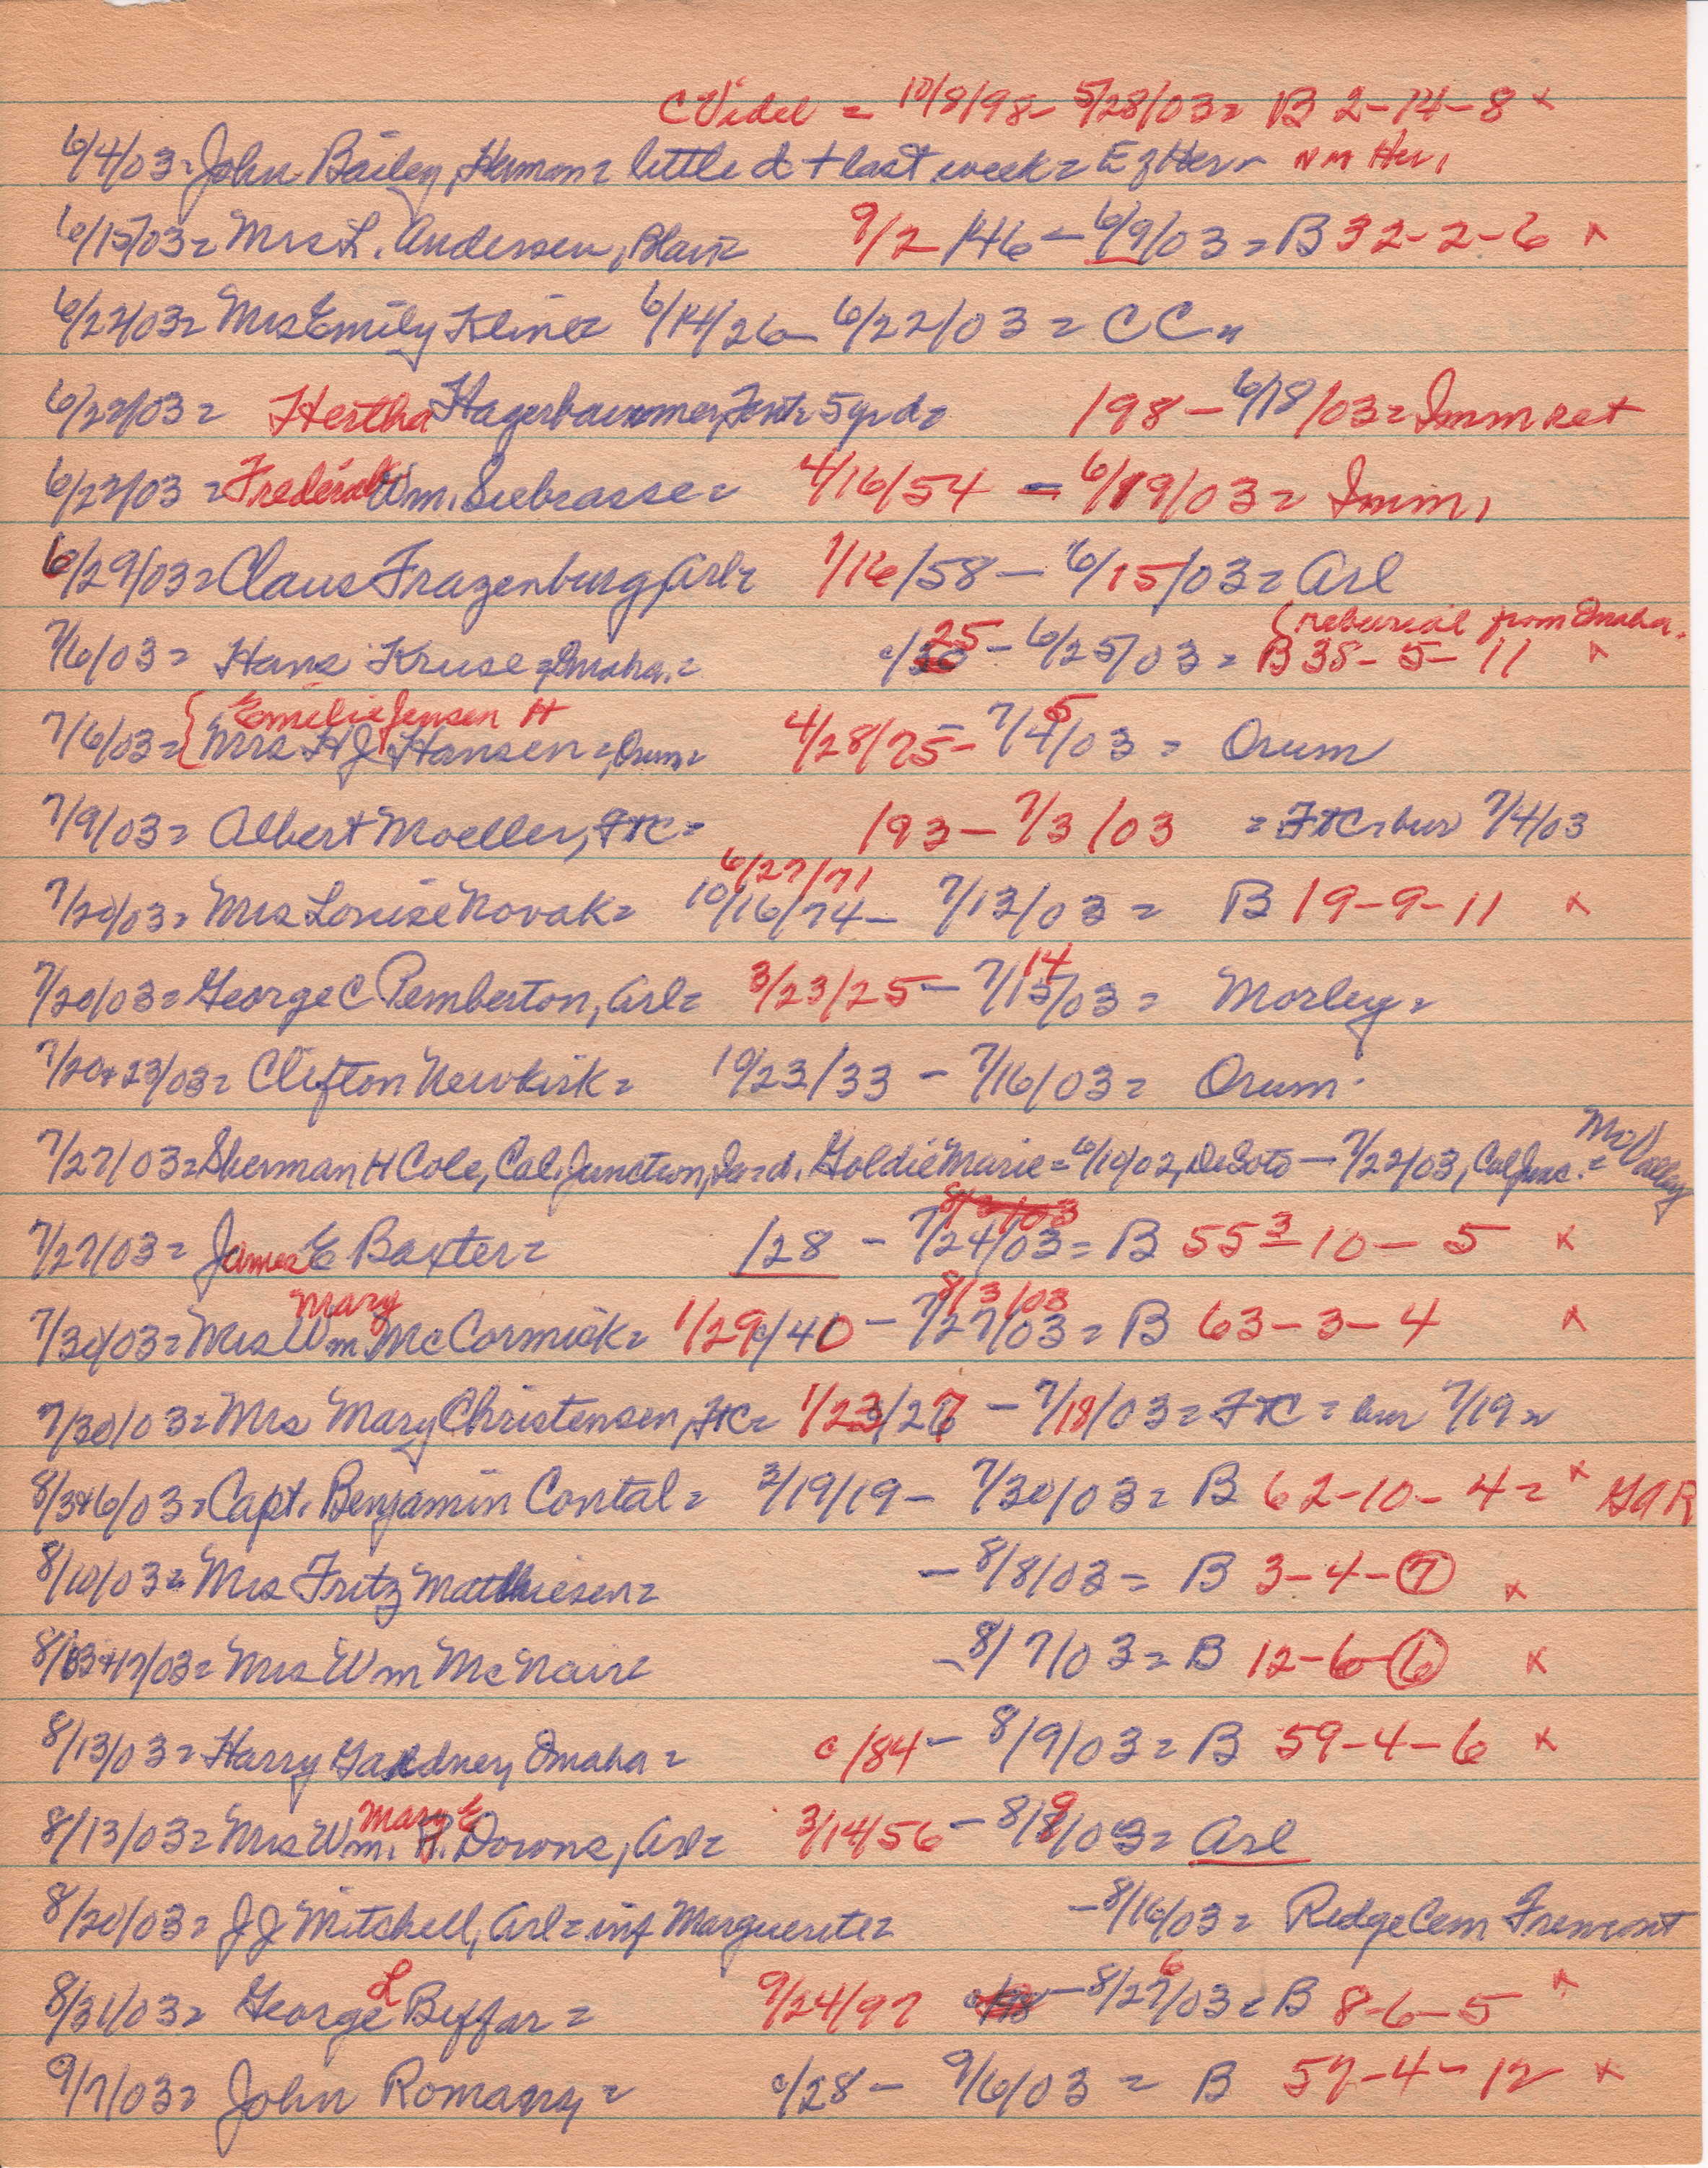 C Videl = 10/8/98 - 5/28/03 = B 2-14-8 x
6/4/03 = John Bailey, Herman = little d + last week = E of Her = N M Her,
6/15/03 = Mrs L. Andersen, Blair = 9/2/46 - 6/9/03 = B 32-2-6 x
6/22/03 = Mrs Emily Kline = 6/14/26 - 6/22/03 = CC =
6/22/03 = Hertha Hagerbaummer, Font = 5 yr d = /98 - 6/18/03 = Imm ret
6/22/03 = Frederick Wm. Siebrasse = 4/16/54 - 6/19/03 = Imm,
6/29/03 = Claus Frazenburg, Arl = 1/16/58 - 6/15/03 = Arl
(reburial from Omaha.
7/6/03 = Hans Kruse = Omaha. = c/25 - 6/25/03 = B 38-5-11 x
Emilie Jensen H 5
7/6/03 = {Mrs H J Hansen =, Orum = 4/28/75 - 7/4/03 = Orum
7/9/03 = Albert Moeller, FtC = /93 - 7/3/03 = FtC = bur 7/4/03
6/27/71
7/20/03 = Mrs Louise Novak = 10/16/74 - 7/13/03 = B 19-9-11 x
14
7/20/03 = George C Pemberton, Arl = 3/23/25 - 7/15/03 = Morley =
7/20+23/03 = Clifton Newkirk = 10/23/33 - 7/16/03 = Orum.
7/27/03 = Sherman H Cole, Cal. Junction, Ia = d. Goldie Marie = 6/10/02, DeSoto - 7/22/03, Cal Junc. = Mo Valley
8/3/03
7/27/03 = James E Baxter = /28 - 7/24/03 = B 55 3 - 10 - 5 x
Mary 8/3/03
7/30/03 = Mrs Wm McCormick = 1/29/40 - 7/27/03 = B 63-3-4 x
7/30/03 = Mrs Mary Christensen, FtC = 1/23/27 - 7/18/03 = FtC = bur 7/19 =
8/3+6/03 = Capt. Benjamin Contal = 3/19/19 - 7/30/03 = B 62-10-4 = x GAR
8/10/03 = Mrs Fritz Matthiesen = - 8/8/03 = B 3-4-7 x
8/13+17/03 = Mrs Wm McNair = - 8/7/03 = B 12-6-6 x
8/13/03 = Harry Gardner, Omaha = c/84 - 8/9/03 = B 59-4-6 x
Mary E 9
8/13/03 = Mrs Wm. H. Downs, Arl = 3/14/56 - 8/8/03 = Arl
8/20/03 = J J Mitchell, Arl = inf Marguerite = - 8/16/03 = Ridge Cem Fremont
L 6
8/31/03 = George Beffar = 9/24/97 - 8/27/03 = B 8-6-5 x
9/7/03 = John Romany = c/28 - 9/6/03 = B 57-4-12 x